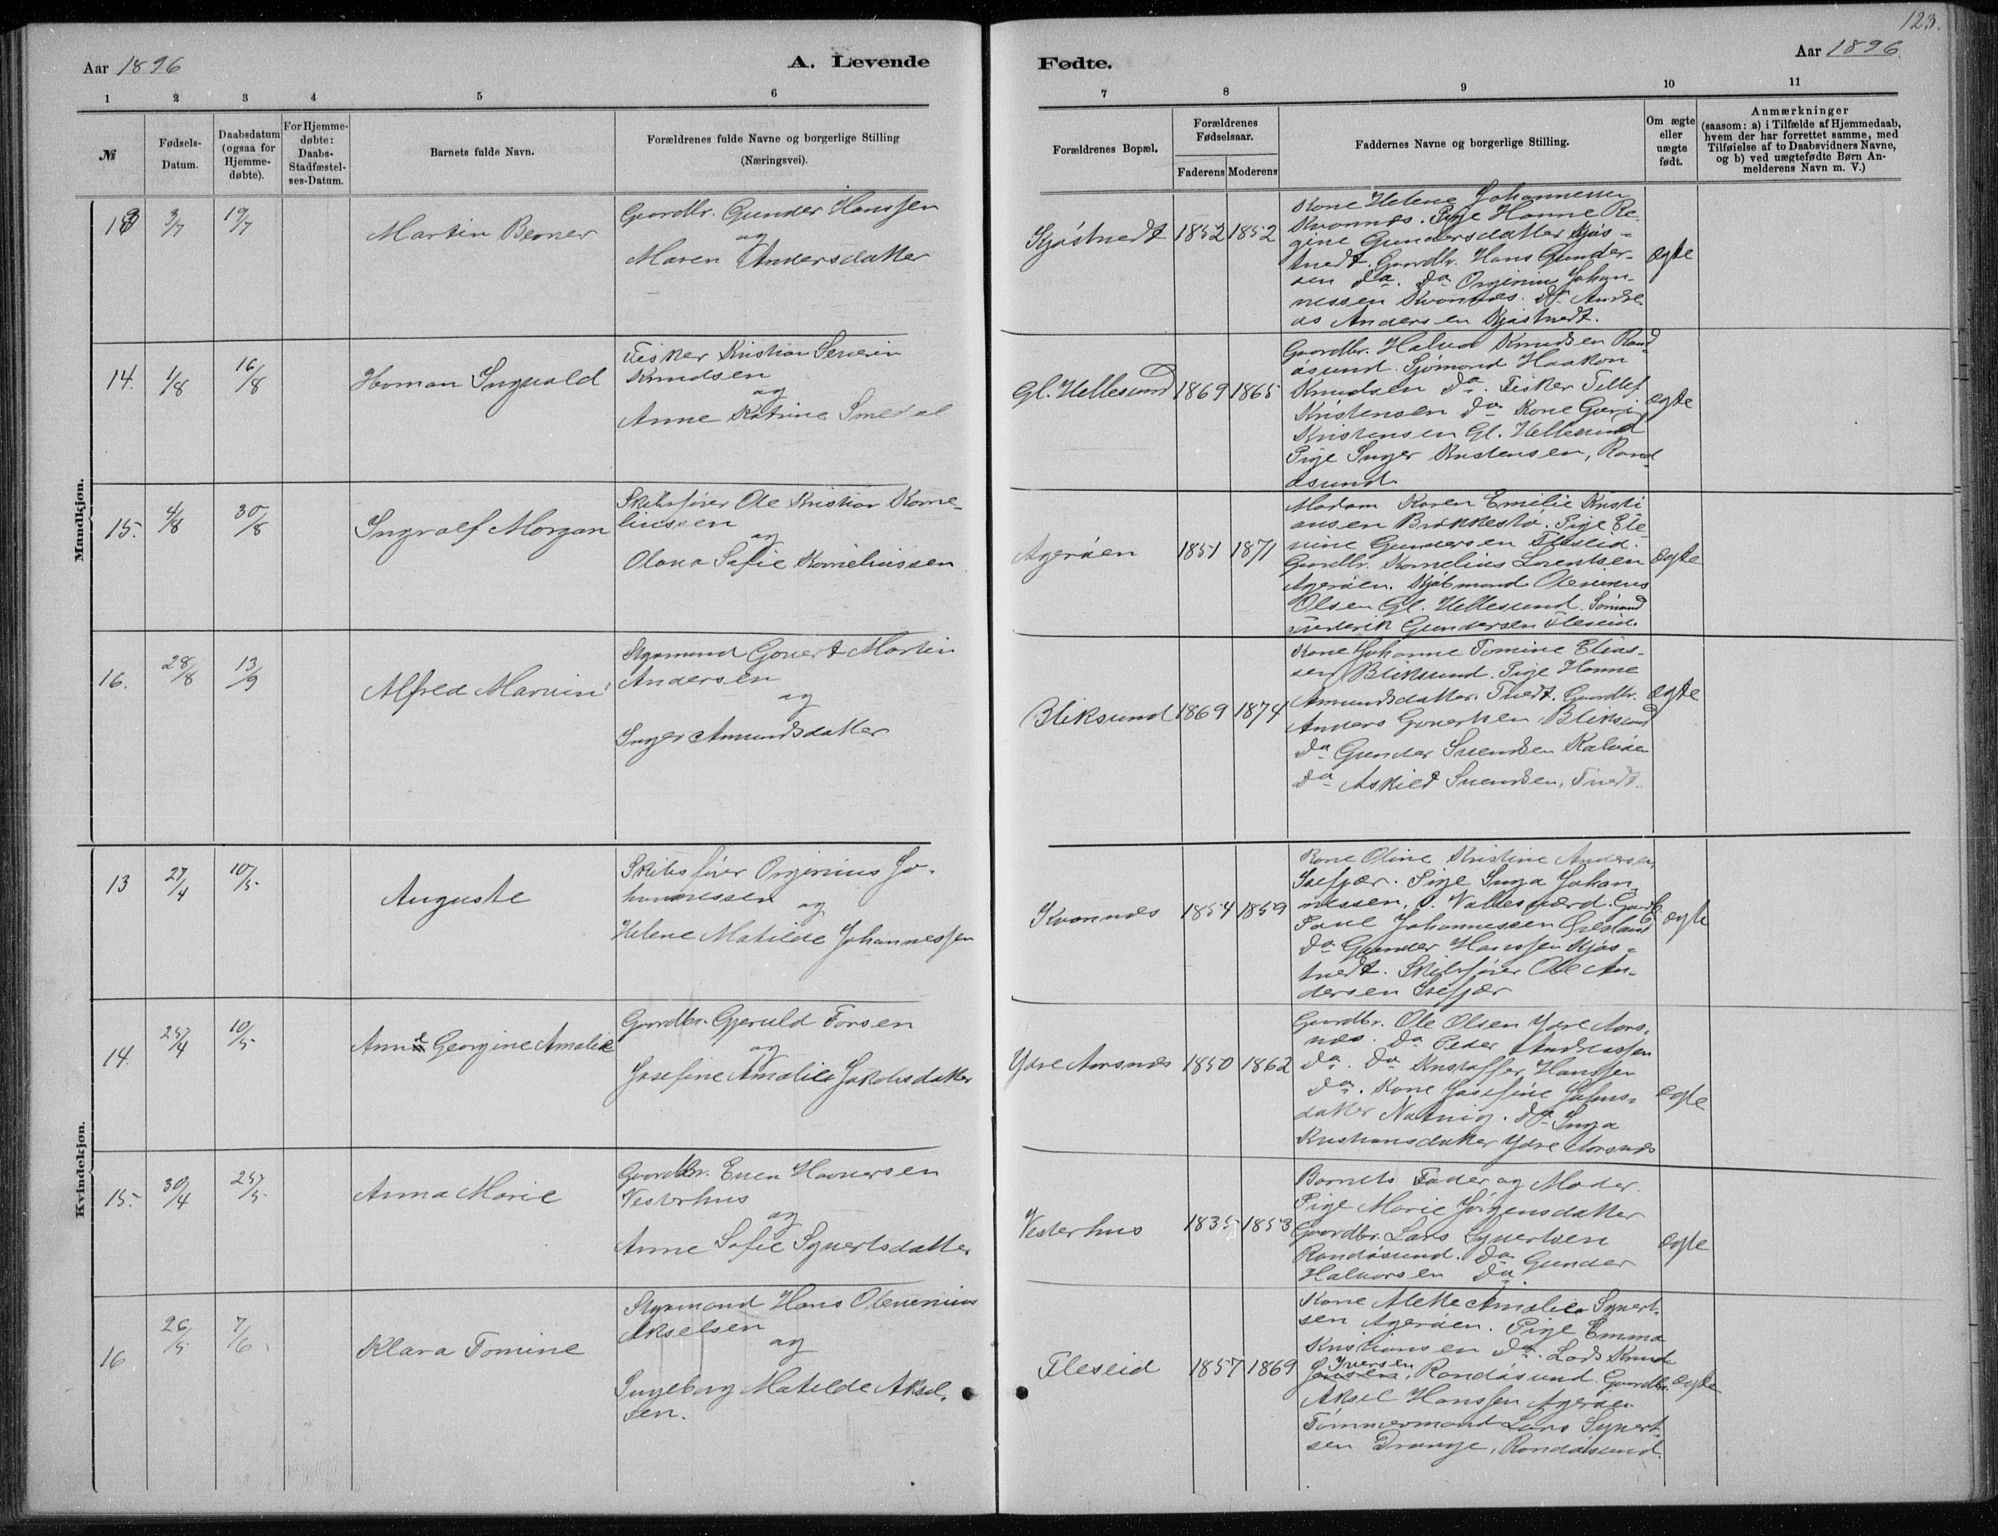 123.
Aar 1896
A. Levende
Fødte.
Aar 1896.
1 2 3 4 5 6 7 8 9 10 11
№
Fødsels-
Datum.
Daabsdatum
(ogsaa for
Hjemme-
døbte).
For Hjemme-
døbte:
Daabs-
Stadfæstel-
ses-Datum.
Barnets fulde Navn.
Forældrenes fulde Navne og borgerlige Stilling
(Næringsvei).
Forældrenes Bopæl.
Forældrenes
Fødselsaar.
Faderens Moderens
Faddernes Navne og borgerlige Stilling.
Om ægte
eller
uægte
født.
Anmærkninger
(saasom: a) i Tilfælde af Hjemmedaab,
hvem der har forrettet samme, med
Tilføielse af to Daabsvidners Navne,
og b) ved uægtefødte Børn An-
melderens Navn m. V.)
Mandkjøn.
13 3/7 19/7
Martin Berner
Gaardbr. Gunder Hanssen
og
Maren Andersdatter
Kjøstvedt 1852 1852
Kone Helene Johannessen
Kvannes. Pige Hanne Re-
gine Gundersdatter Kjøs-
tvedt. Gaardbr. Hans Gunder-
sen Do. Do Orginius Johan-
nessen Kvannes. Do Andre-
as Andersen Kjøstvedt.
ægte
14. 1/8 16/8
Herman Ingvald
Fisker Kristian Severin
Knudsen
og
Anne Katrine Smedal
Gl. Hellesund 1869 1865
Gaardbr. Halvor Knudsen Rand
øsund. Sjømand Haakon
Knudsen Do. Fisker Tellef
Kristensen Do Kone Guri
Kristensen Gl. Hellesund
Pige Inger Kristensen, Rand-
øsund.
ægte
15. 4/8 30/8
Ingvalf Morgan
Skibsfører Ole Kristian Korne-
liussen
og
Olava Sofie Korneliussen
Agerøen 1851 1871
Madam Karen Emelie Kristi
ansen Brækkestø. Pige Ele-
nine Gundersen Fleseid.
Gaardbr. Kornelius Lorentsen
Agerøen. Kjøbmand Olevinus
Olsen Gl. Hellesund. Sømand
Frederik Gundersen Fleseid.
ægte
16. 28/8 13/9
Alfred Marvin
Styrmand Govert Martin
Andersen
og
Inger Amundsdatter
Bliksund 1869 1874
Kone Johanne Tomine Elias-
sen Bliksund. Pige Hanne
Amundsdatter. Tvedt. Gaardbr.
Anders Govertsen, Bliksund
Do Gunder Svendsen Kalvøen
Do Askild Svendsen, Tvedt.
ægte
Kvindekjøn.
13 27/4 10/5
Auguste
Skibsfører Orginius Jo-
hannessen og
Helene Matilde Johannessen
Kvannes 1854 1859
Kone Oline Kristine Andersen,
Isefjær. Pige Inga Johan-
nessen, Vallesværd. Gaardb.
Tane Johannessen
Do Gunder Hanssen Kjøs-
tvedt. Skibsfører Ole An-
dersen Isefjær
ægte
14. 25/4 10/5
Anne Georgine Amalie
Gaardbr. Gjeruld Torsen
og
Josefine Amalie Jakobsdatter
Ydre Aarsnes 1850 1862
Gaardbr. Ole Olsen Ydre Aars-
næs. Do Peder Andreassen
Do. Do Kristoffer Hanssen
Do. Kone Josefine Jakobs-
datter Natvig. Do Inga
Kristiansdatter Ydre Aarsnes
ægte
15. 30/4 25/5
Anna Marie
Gaardbr. Even Havorsen
Vesterhus
og
Anne Sofie Syvertsdatter
Vesterhus 1835 1853
Barnets Fader og Moder.
Pige Marie Jørgensdatter
Gaardbr. Lars Syvertsen
Randøsund. Do Gunder
Halvorsen Do.
ægte
16 26/5 7/6
Klara Tomine
Styrmand Hans Olevinius
Akselsen
og
Ingeborg Matilde Aksel-
sen.
Fleseid 1857 1869
Kone Alette Amalie Syvert-
sen Agerøen. Pige Emma
Kristiansen Do. Lods Knud
Iversen
Jansen, Randøsund. Gaardbr.
Aksel Hanssen Agerøen
Tømmermand Lars Syvert-
sen Drange, Randøsund.
ægte